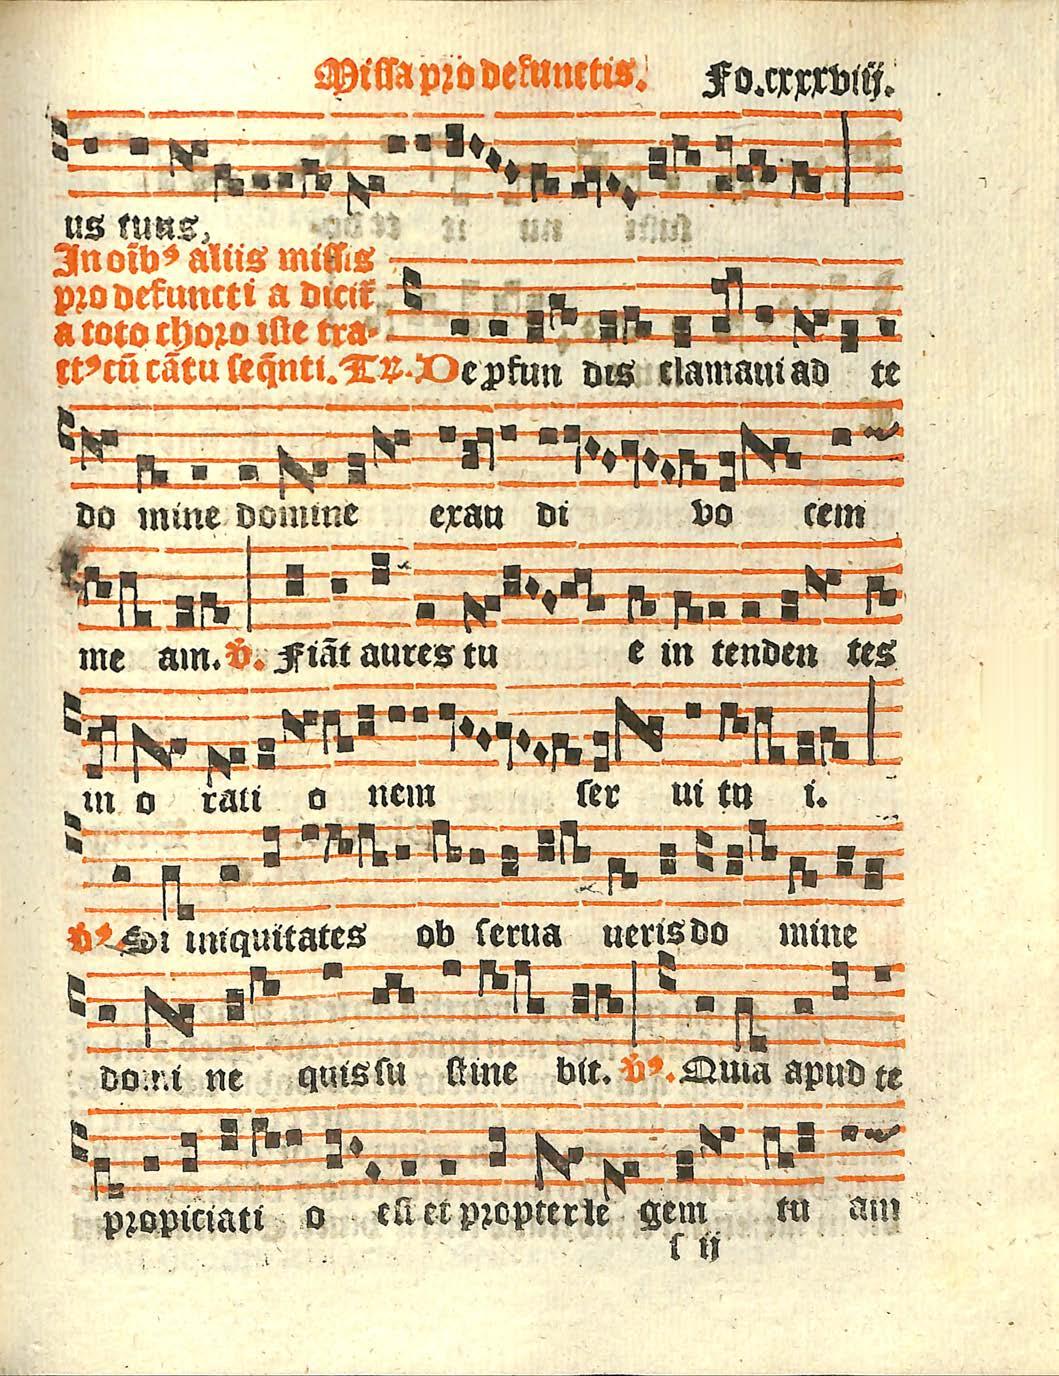 Missa pro defunctis. Fo.cxxxviij.
us tuus,
In oib⁹ aliis missis
pro defuncti a dicit̄
a toto choro iste tra-
ct⁹ cū cātu seq̄nti. Tr. De ꝓfun dis clamaui ad te
do mine domine exau di vo cem
me am. ℣. Fiāt aures tu e in tenden tes
in o rati o nem ser ui tu i.
℣⁹. Si iniquitates ob serua ueris do mine
domi ne quis su stine bit. ℣⁹. Quia apud te
propiciati o est et propter le gem tu am
s ij